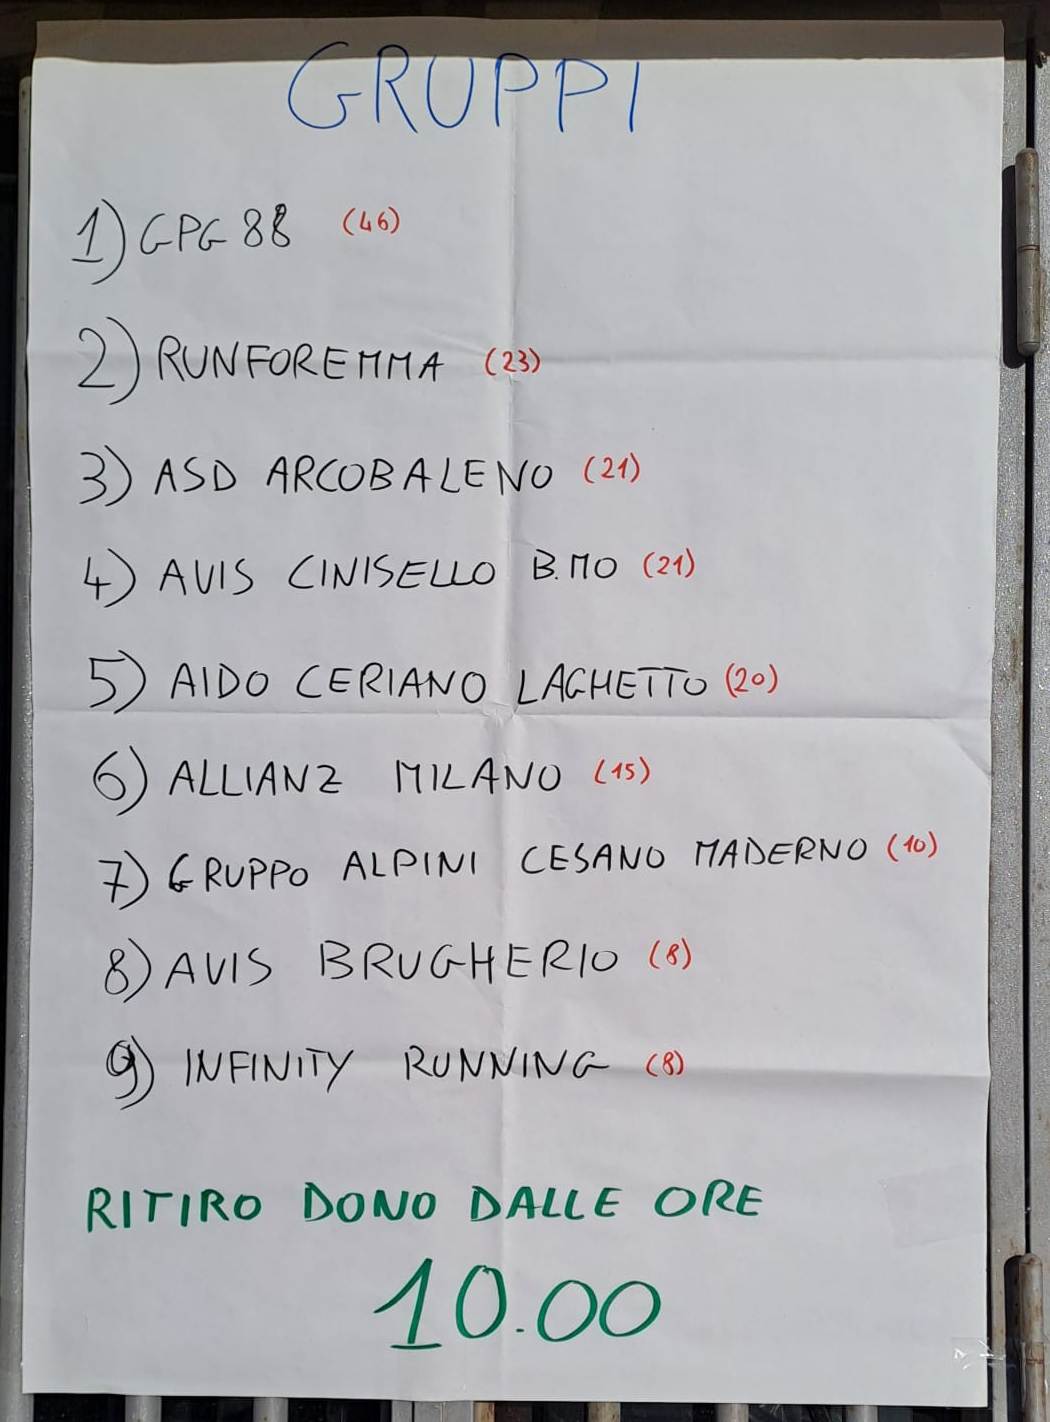 GRUPPI
1) GPG 88 (46)
2) RUNFOREMMA (23)
3) ASD ARCOBALENO (21)
4) AVIS CINISELLO B.MO (21)
5) AIDO CERIANO LAGHETTO (20)
6) ALLIANZ MILANO (15)
7) GRUPPO ALPINI CESANO MADERNO (10)
8) AVIS BRUGHERIO (8)
9) INFINITY RUNNING (8)
RITIRO DONO DALLE ORE
10.00